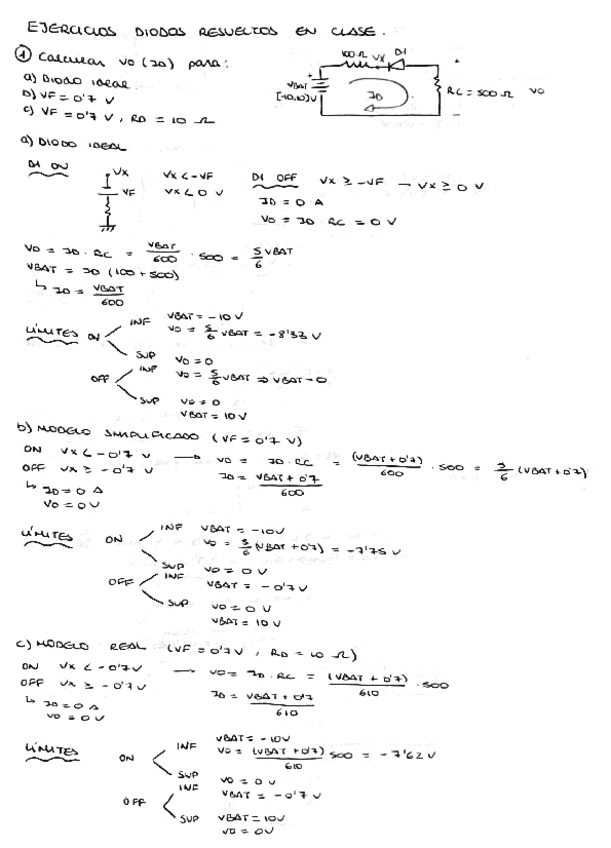 EJERCICIOS DIODOS RESUELTOS EN CLASE.
① Calcular VO (ID) para:
a) DIODO IDEAL
b) VF = 0'7 V
c) VF = 0'7 V, RD = 10 Ω
100 Ω VX D1
+ +
VBAT
[-10,10]V
ID
RC = 500 Ω VO
-
a) DIODO IDEAL
D1 ON VX VX < -VF D1 OFF VX ≥ -VF → VX ≥ 0 V
VF VX < 0 V ID = 0 A
VO = ID · RC = 0 V
VO = ID · RC = VBAT/600 · 500 = 5/6 VBAT
VBAT = ID (100 + 500)
↳ ID = VBAT/600
LÍMITES ON INF VBAT = -10 V
VO = 5/6 VBAT = -8'33 V
SUP VO = 0
OFF INF VO = 5/6 VBAT ⇒ VBAT = 0
SUP VO = 0
VBAT = 10 V
b) MODELO SIMPLIFICADO (VF = 0'7 V)
ON VX < -0'7 V → VO = ID · RC = (VBAT + 0'7)/600 · 500 = 5/6 (VBAT + 0'7)
OFF VX ≥ -0'7 V ID = VBAT + 0'7/600
↳ ID = 0 A
VO = 0 V
LÍMITES ON INF VBAT = -10 V
VO = 5/6 (VBAT + 0'7) = -7'75 V
SUP VO = 0 V
OFF INF VBAT = -0'7 V
SUP VO = 0 V
VBAT = 10 V
c) MODELO REAL (VF = 0'7 V, RD = 10 Ω)
ON VX < -0'7 V → VO = ID · RC = (VBAT + 0'7)/610 · 500
OFF VX ≥ -0'7 V ID = VBAT + 0'7/610
↳ ID = 0 A
VO = 0 V
LÍMITES ON INF VBAT = -10 V
VO = (VBAT + 0'7)/610 500 = -7'62 V
SUP VO = 0 V
OFF INF VBAT = -0'7 V
SUP VBAT = 10 V
VO = 0 V